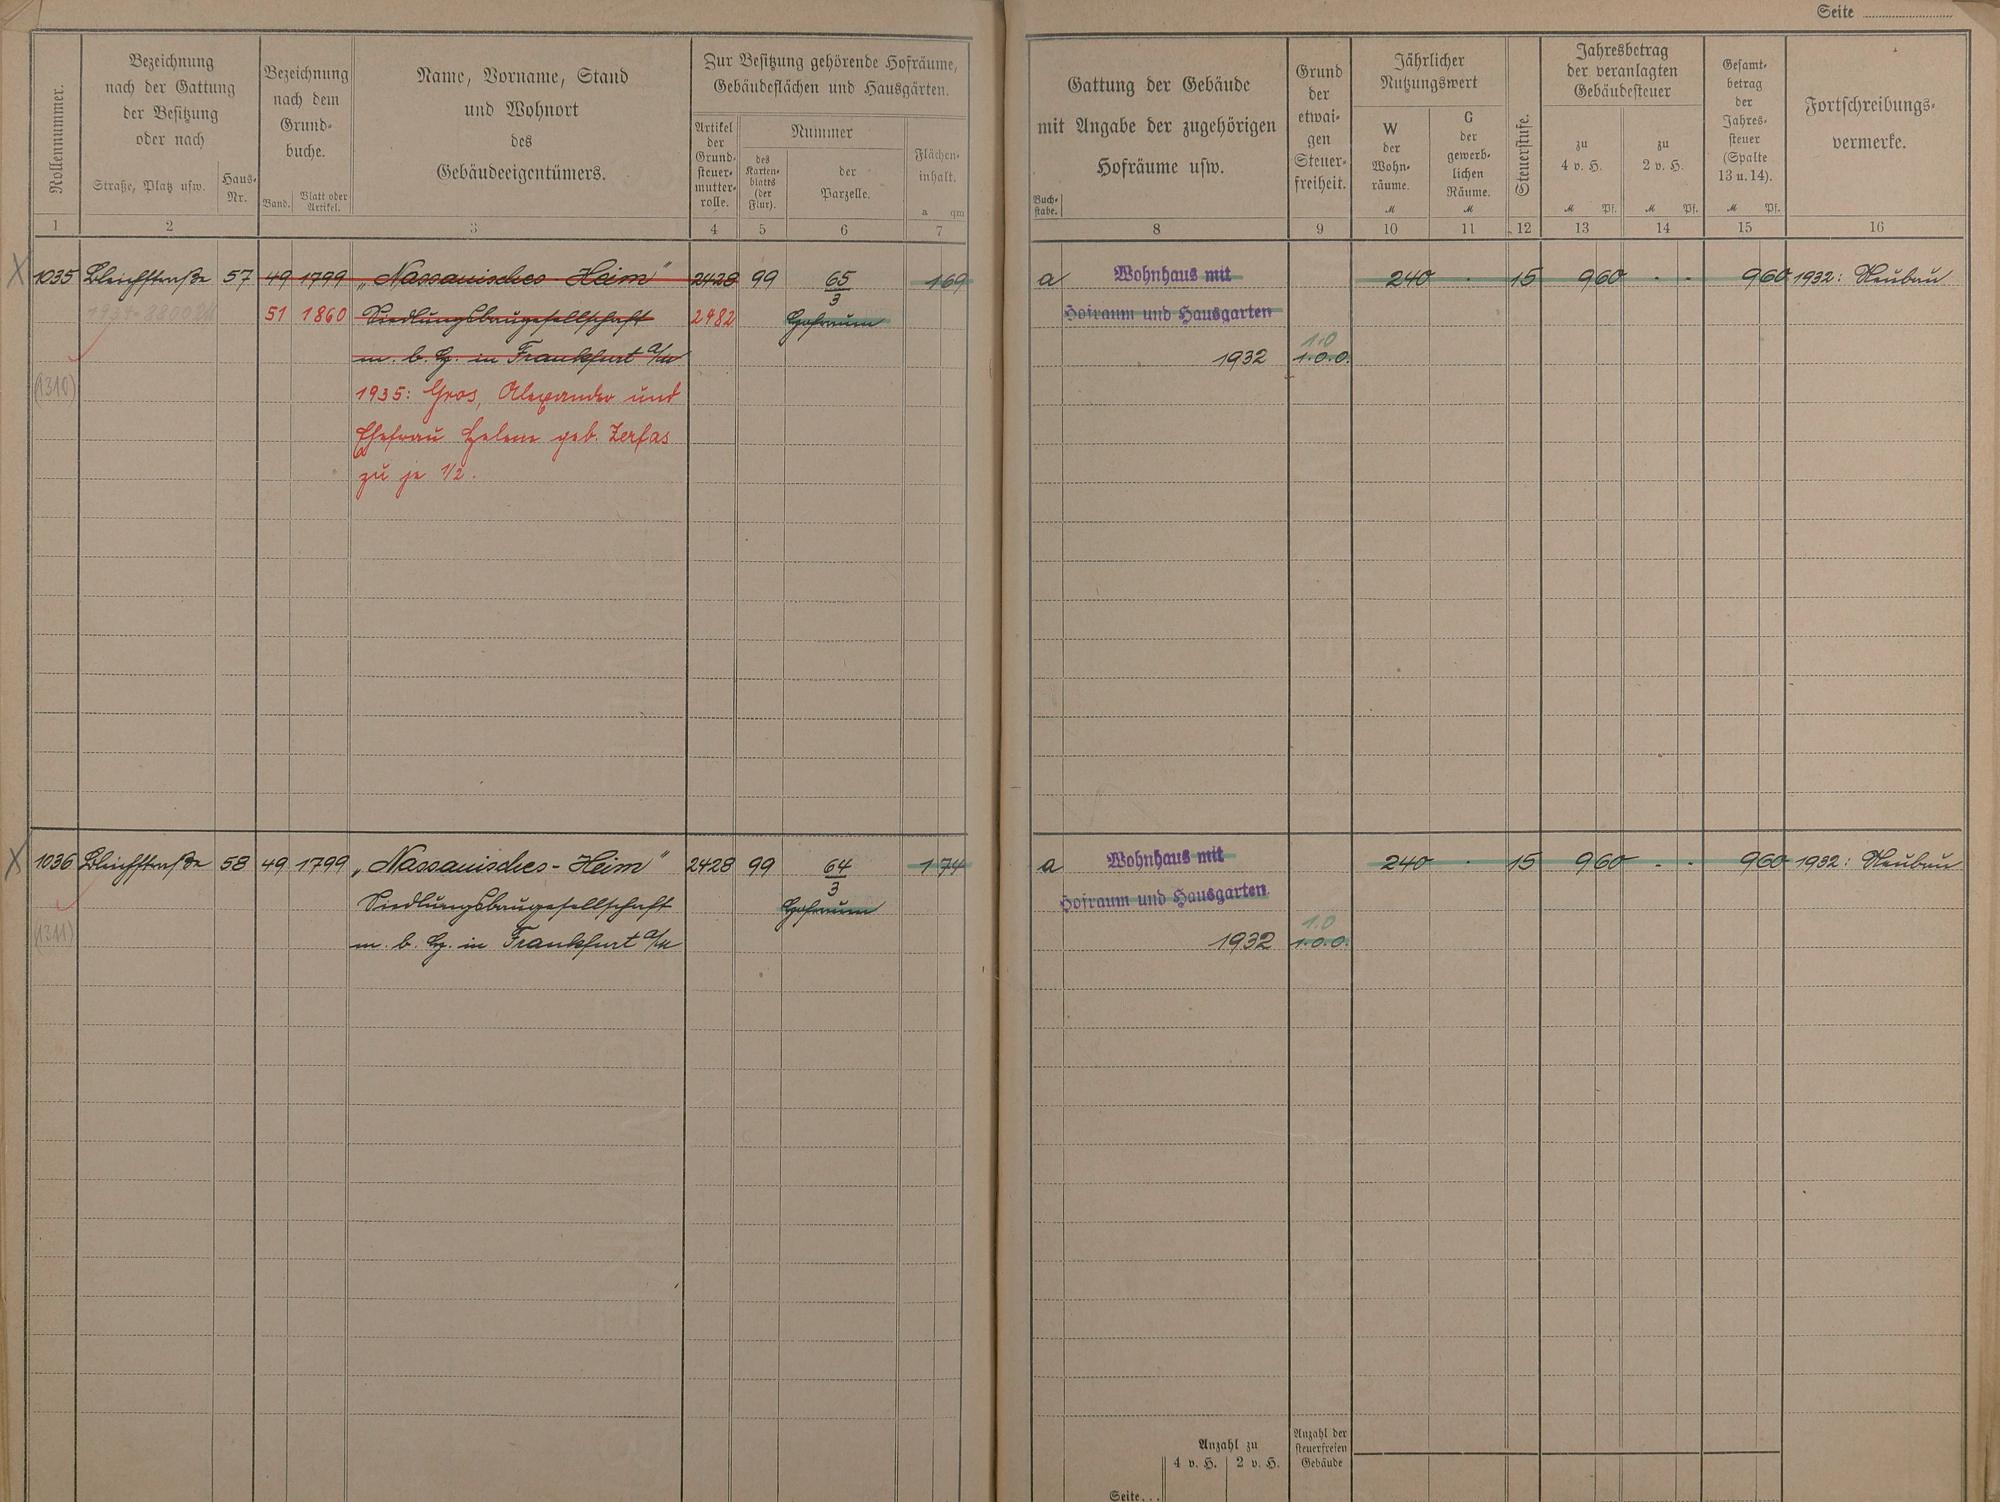 Seite
Rollennummer.
Bezeichnung
nach der Gattung
der Besitzung
oder nach
Straße, Platz usw.
Haus-
Nr.
Bezeichnung
nach dem
Grund-
buche.
Band.
Blatt oder
Artikel.
Name, Vorname, Stand
und Wohnort
des
Gebäudeeigentümers.
Zur Besitzung gehörende Hofräume,
Gebäudeflächen und Hausgärten.
Artikel
der
Grund-
steuer-
mutter-
rolle.
Nummer
des
Karten-
blatts
(der
Flur).
der
Parzelle.
Flächen-
inhalt.
a qm
Gattung der Gebäude
mit Angabe der zugehörigen
Hofräume usw.
Buch-
stabe.
Grund
der
etwai-
gen
Steuer-
freiheit.
Jährlicher
Nutzungswert
W
der
Wohn-
räume.
M
G
der
gewerb-
lichen
Räume.
M
Steuerstufe.
Jahresbetrag
der veranlagten
Gebäudesteuer
zu
4 v. H.
M Pf.
zu
2 v. H.
M Pf.
Gesamt-
betrag
der
Jahres-
steuer
(Spalte
13 u. 14).
M Pf.
Fortschreibungs-
vermerke.
1 2 3 4 5 6 7 8 9 10 11 12 13 14 15 16
X 1035 Bleichstraße 57 49 1799 „Nassauisches-Heim" 2428 99 65/3 169 a Wohnhaus mit 240 · 15 960 - - 960 1932: Neubau
51 1860 Siedlungsbaugesellschaft 2482 Hofraum Hofraum und Hausgarten
m. b. H. in Frankfurt a/M 1932 1.0 1.0.0.
(1310)
1935: Gros, Alexander und
Ehefrau Helene geb. Zerfas
zu je 1/2.
X 1036 Bleichstraße 58 49 1799 „Nassauisches-Heim" 2428 99 64/3 174 a Wohnhaus mit 240 · 15 960 - - 960 1932: Neubau
Siedlungsbaugesellschaft Hofraum Hofraum und Hausgarten
(1311) m. b. H. in Frankfurt a/M 1932 1.0 1.0.0.
Anzahl zu
4 v. H. 2 v. H.
Anzahl der
steuerfreien
Gebäude
Seite...